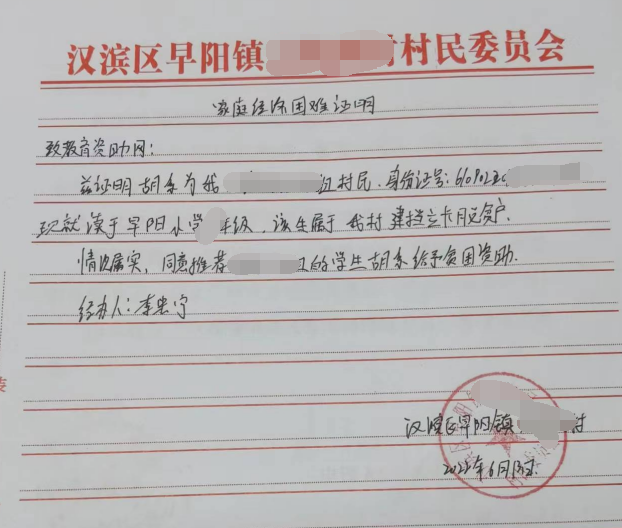 汉滨区早阳镇 村民委员会
家庭经济困难证明
致教育资助网：
兹证明胡系为我 组村民，身份证号：61090220
现就读于早阳小学 年级，该生属于我村建档立卡脱贫户
情况属实，同意推荐 的学生胡系给予贫困资助。
经办人：李忠宁
汉滨区早阳镇 村
2022年6月